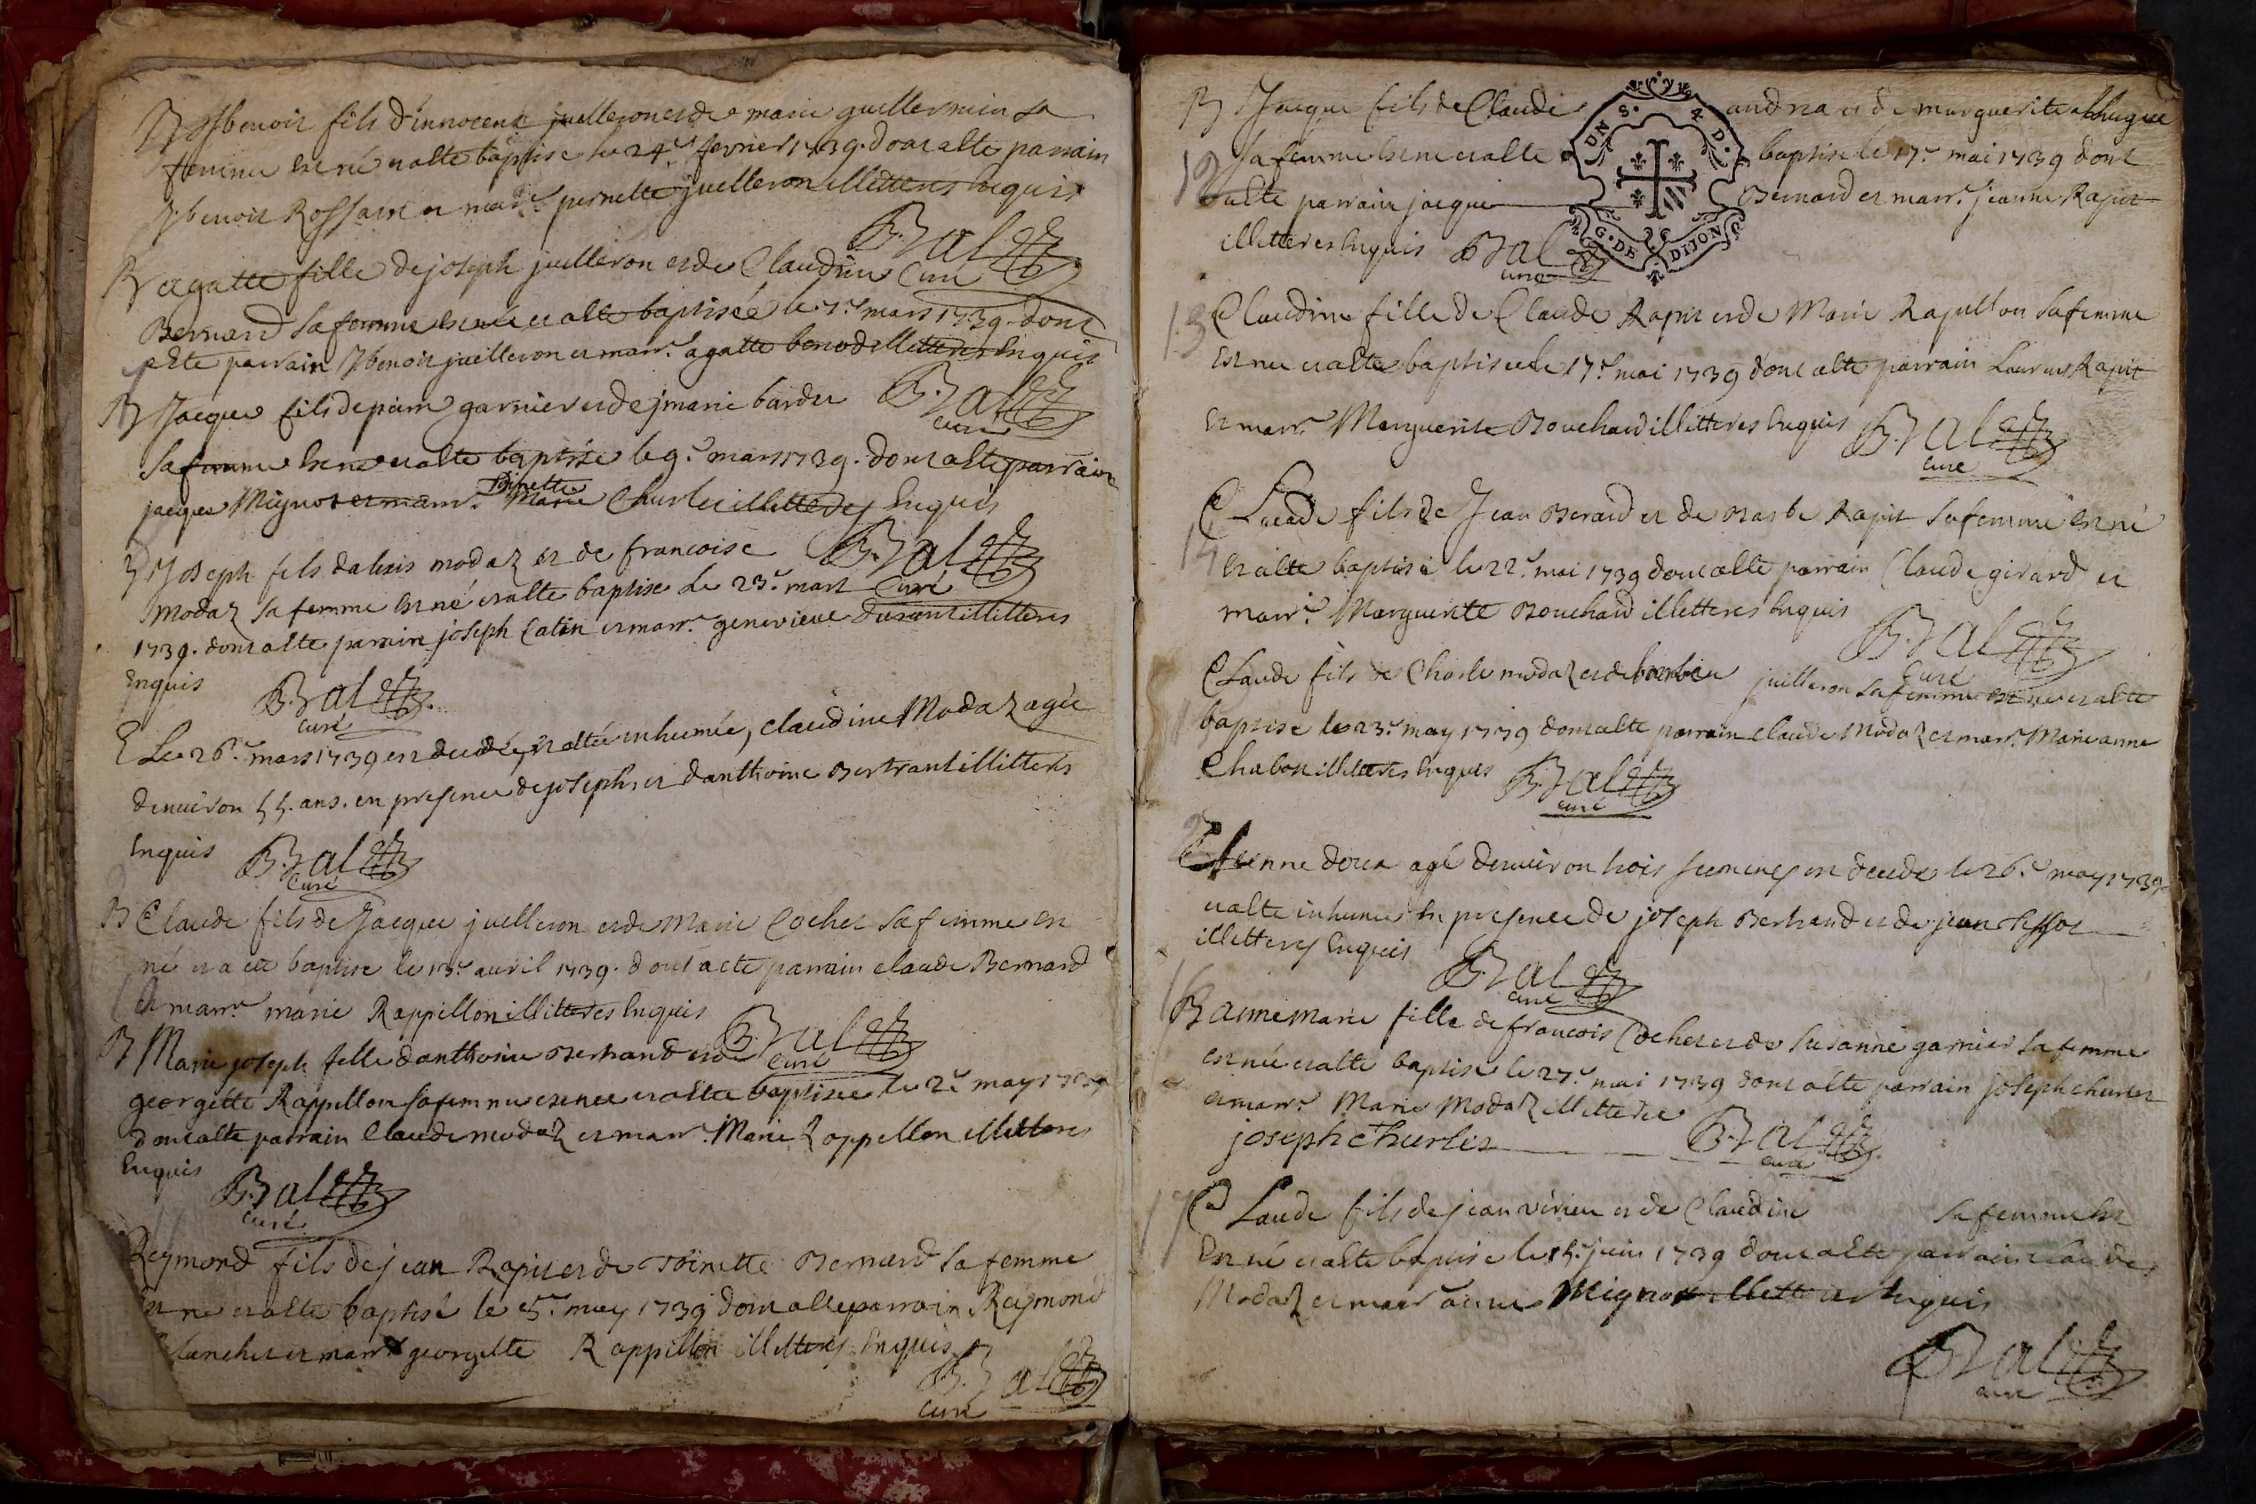 B Ybenoit fils d'innocent juilleron et de marie guillermin sa
femme est né et a ete baptise le 24.e fevrier 1739. dont a ete parrain
Ybenoit Rossain et marr.e pernette juilleron illitteres enquis
B. Bal
curé
B agatte fille de joseph juilleron et de Claudine
Bernard sa femme est née et a ete baptisée le 7.e mars 1739. dont
a Ete parrain Ybenoit juilleron et marr.e agatte benod illitteres Enquis
B. Bal
curé
B Jacque fils de pierre garnier et de jmarie bardet
sa femme est ne et a ete baptisé le 9.e mars 1739. dont a ete parrain
Pinette
jacque Mignot et marr.e Marie Churlet illitteres Enquis
B. Bal
Curé
B Joseph fils dalexis modaz et de francoise
modaz sa femme est né et a ete baptise Le 23.e mars
1739. dont a ete parrain joseph Catin et marr.e genevieve Durant illitteres
Enquis
B. Bal
curé
E Le 26.e mars 1739 est decedée, et a été inhumée, claudine Modaz agée
denuiron 55. ans. en presence de joseph, et danthoine Bertrant illitteres
Enquis
B. Bal
curé
B Claude fils de Jacque juilleron et de Marie Cochet sa femme est
né et a été baptise le 13.e auril 1739. dont a ete parrain claude Bernard
et marr.e marie Rappillon illitteres Enquis
B. Bal
Curé
B Marie joseph fille danthoine Bertrand et de
georgette Rappillon sa femme est née et a ete baptisée le 2.e may 1739
dont a ete parrain Claude modaz et marr.e Marie Rappellon illitteres
Enquis
B. Bal
curé
Reymond fils de jean Rapit et de Toinette Bernard sa femme
est ne et a ete baptisé le 5.e may 1739 dont a ete parrain Reymond
blanchet et marr.e georgette Rappillon illitteres Enquis
B. Bal
curé
B Jacque fils de Claude andrea et de marguerite
12 sa femme est ne et a ete baptisé le 17.e mai 1739 dont
a ete parrain jacque Bernard et marr.e jeanne Rapit
illitteres Enquis B. Bal
curé
UN S. 4. D.
G. DE DIJON
13 Claudine fille de Claude Rapit et de Marie Rapillon sa femme
est nee et a ete baptisee le 17.e mai 1739 dont a ete parrain Laurent Rapit
et marr.e Marguerite Bouchard illitteres Enquis
B. Bal
curé
14 Claude fils de Jean Berard et de Barbe Rapit sa femme est né
et a ete baptisé le 22.e mai 1739 dont a ete parrain Claude girard et
marr.e Marguerite Bouchard illitteres Enquis
B. Bal
Curé
Claude fils de Charle modaz et de barbe juilleron sa femme est né et a ete
baptise le 23.e may 1739 dont a ete parrain claude Modaz et marr.e Marie anne
Chabon illitteres Enquis B. Bal
curé
Etienne agé denuiron trois semenes est decede le 26.e may 1739
et a ete inhumé En presence de joseph Bertrand et de jean Tissot
illitteres Enquis
B. Bal
curé
16 B anne marie fille de francois Cochet et de Susanne garnier sa femme
est née et a ete baptisé le 27.e mai 1739 dont a ete parrain joseph churlet
et marr.e Marie Modaz illitteree
joseph churlet
B. Bal
curé
17 Claude fils de jean virieu et de Claudine sa femme est
est né et a ete baptise le 15.e juin 1739 dont a ete parrain claude
Modaz et marr.e anne Mignot illitteres Enquis
B. Bal
curé